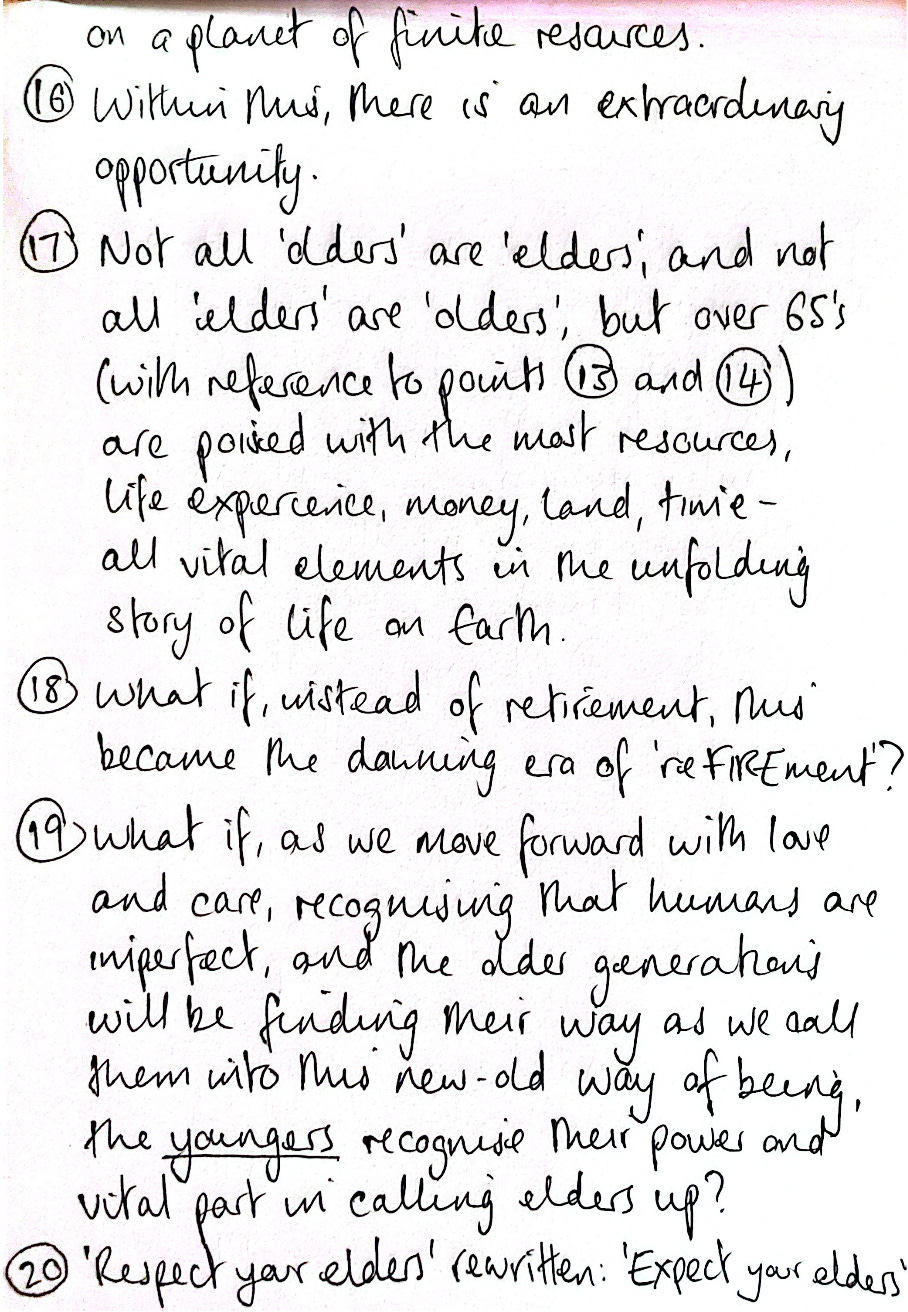 on a planet of finite resources.
(16) Within this, there is an extraordinary
opportunity.
(17) Not all 'olders' are 'elders', and not
all 'elders' are 'olders', but over 65's
(with reference to points (13) and (14))
are poised with the most resources,
life experience, money, land, time -
all vital elements in the unfolding
story of life on Earth.
(18) What if, instead of retirement, this
became the dawning era of 'reFIREment'?
(19) What if, as we move forward with love
and care, recognising that humans are
imperfect, and the older generations
will be finding their way as we call
them into this new-old way of being,
the youngers recognise their power and
vital part in calling elders up?
(20) 'Respect your elders' rewritten: 'Expect your elders'